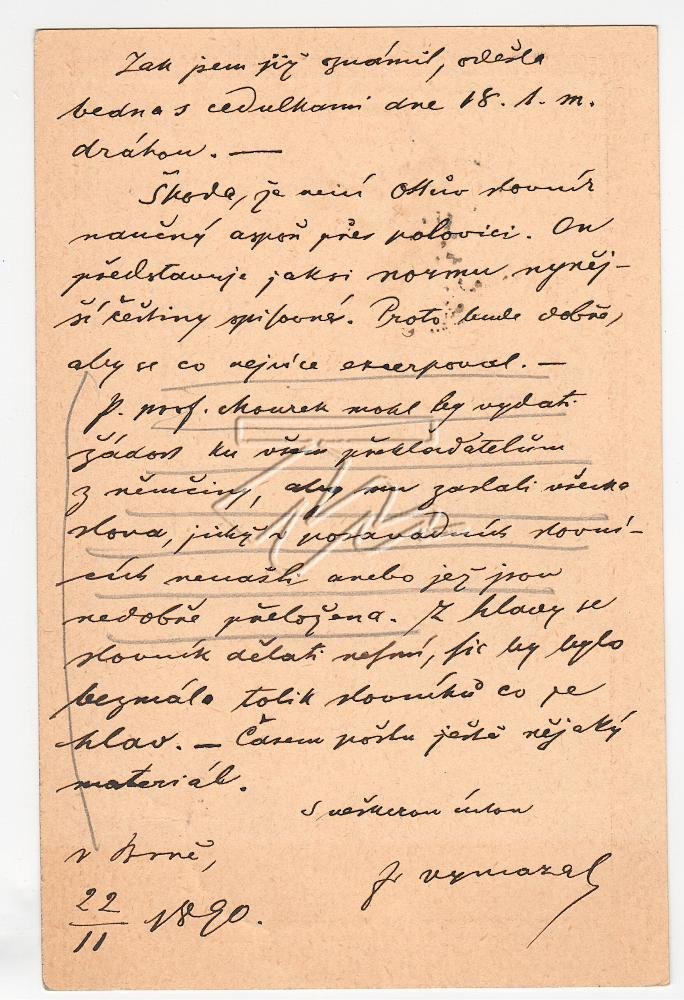 Jak jsem již oznámil, odešla
bedna s cedulkami dne 18. t. m.
dráhou. —
Škoda, že není Ottův slovník
naučný aspoň přes polovici. On
představuje jaksi normu nyněj-
ší češtiny spisovné. Proto bude dobře,
aby se co nejvíce excerpoval. —
P. prof. Mourek mohl by vydati
žádost ku všem překladatelům
z němčiny, aby mu zaslali všecka
slova, jichž v posavadních slovní-
cích nenašli anebo jež jsou
nedobře přeložena. Z hlavy se
slovník dělati nesmí, sic by bylo
bezmála tolik slovníků co je
hlav. — Časem pošlu ještě nějaký
materiál.
S veškerou úctou
v Brně,
Fr Vymazal
22/11 1890.